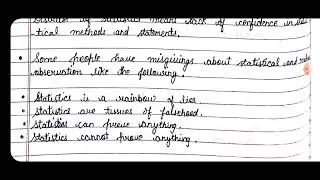 Distrust of statistics means lack of confidence in statis
tical methods and statements.
• Some people have misgivings about statistical and make
observation like the following:
• Statistics is a rainbow of lies.
• Statistics are tissues of falsehood.
• Statistics can prove anything.
• Statistics cannot prove anything.